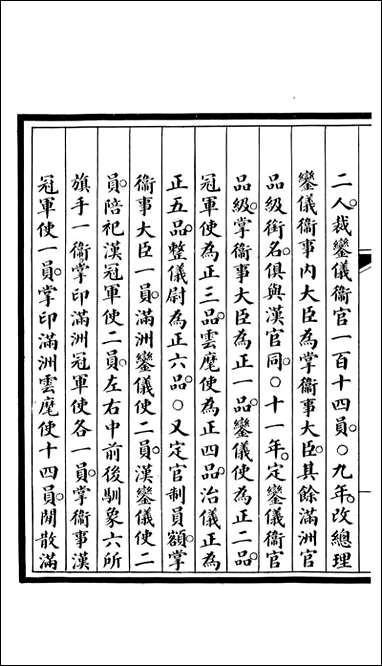 二人。裁鑾儀衞官一百十四員。○九年。改總理
鑾儀衞事內大臣為掌衞事大臣。其餘滿洲官
品級銜名。俱與漢官同。○十一年。定鑾儀衞官
品級。掌衞事大臣為正一品。鑾儀使為正二品。
冠軍使為正三品。雲麾使為正四品。治儀正為
正五品。整儀尉為正六品。○又定官制員額。掌
衞事大臣一員。滿洲鑾儀使二員。漢鑾儀使二
員。陪祀漢冠軍使二員。左右中前後馴象六所
旗手一衞掌印滿洲冠軍使各一員。掌衞事漢
冠軍使一員。掌印滿洲雲麾使十四員。閒散滿